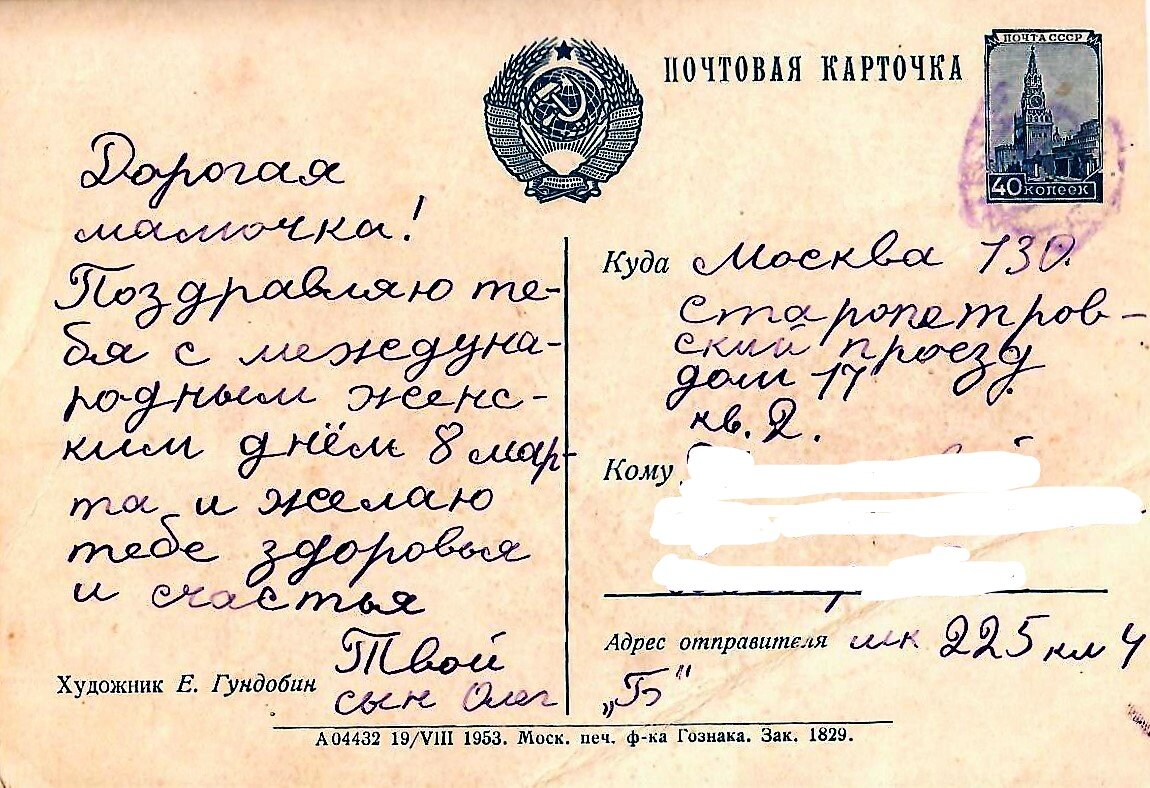 ПОЧТОВАЯ КАРТОЧКА
ПОЧТА СССР
40 КОПЕЕК
Дорогая
мамочка!
Поздравляю те-
бя с междуна-
родным женс-
ким днём 8 мар-
та и желаю
тебе здоровья
и счастья
Твой
сын Олег
Художник Е. Гундобин
Куда Москва 130.
Старопетров-
ский проезд
дом 17
кв. 2.
Кому
Адрес отправителя шк 225 кл 4
„Б"
А 04432 19/VIII 1953. Моск. печ. ф-ка Гознака. Зак. 1829.